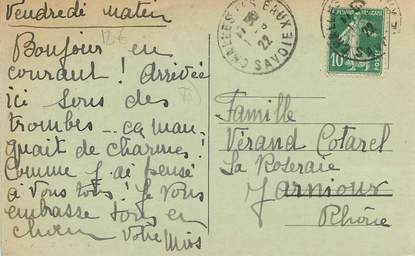 Vendredi matin
Bonjour en
courant ! Arrivée
ici sous des
trombes — ça man-
quait de charmes !
Comme j'ai pensé
à vous tous ! Je vous
embrasse tous en
chœur Votre
CHALLES-LES-EAUX
22
SAVOIE
10
Famille
Vérand Cotarel
La Roseraie
Jarnioux
Rhône